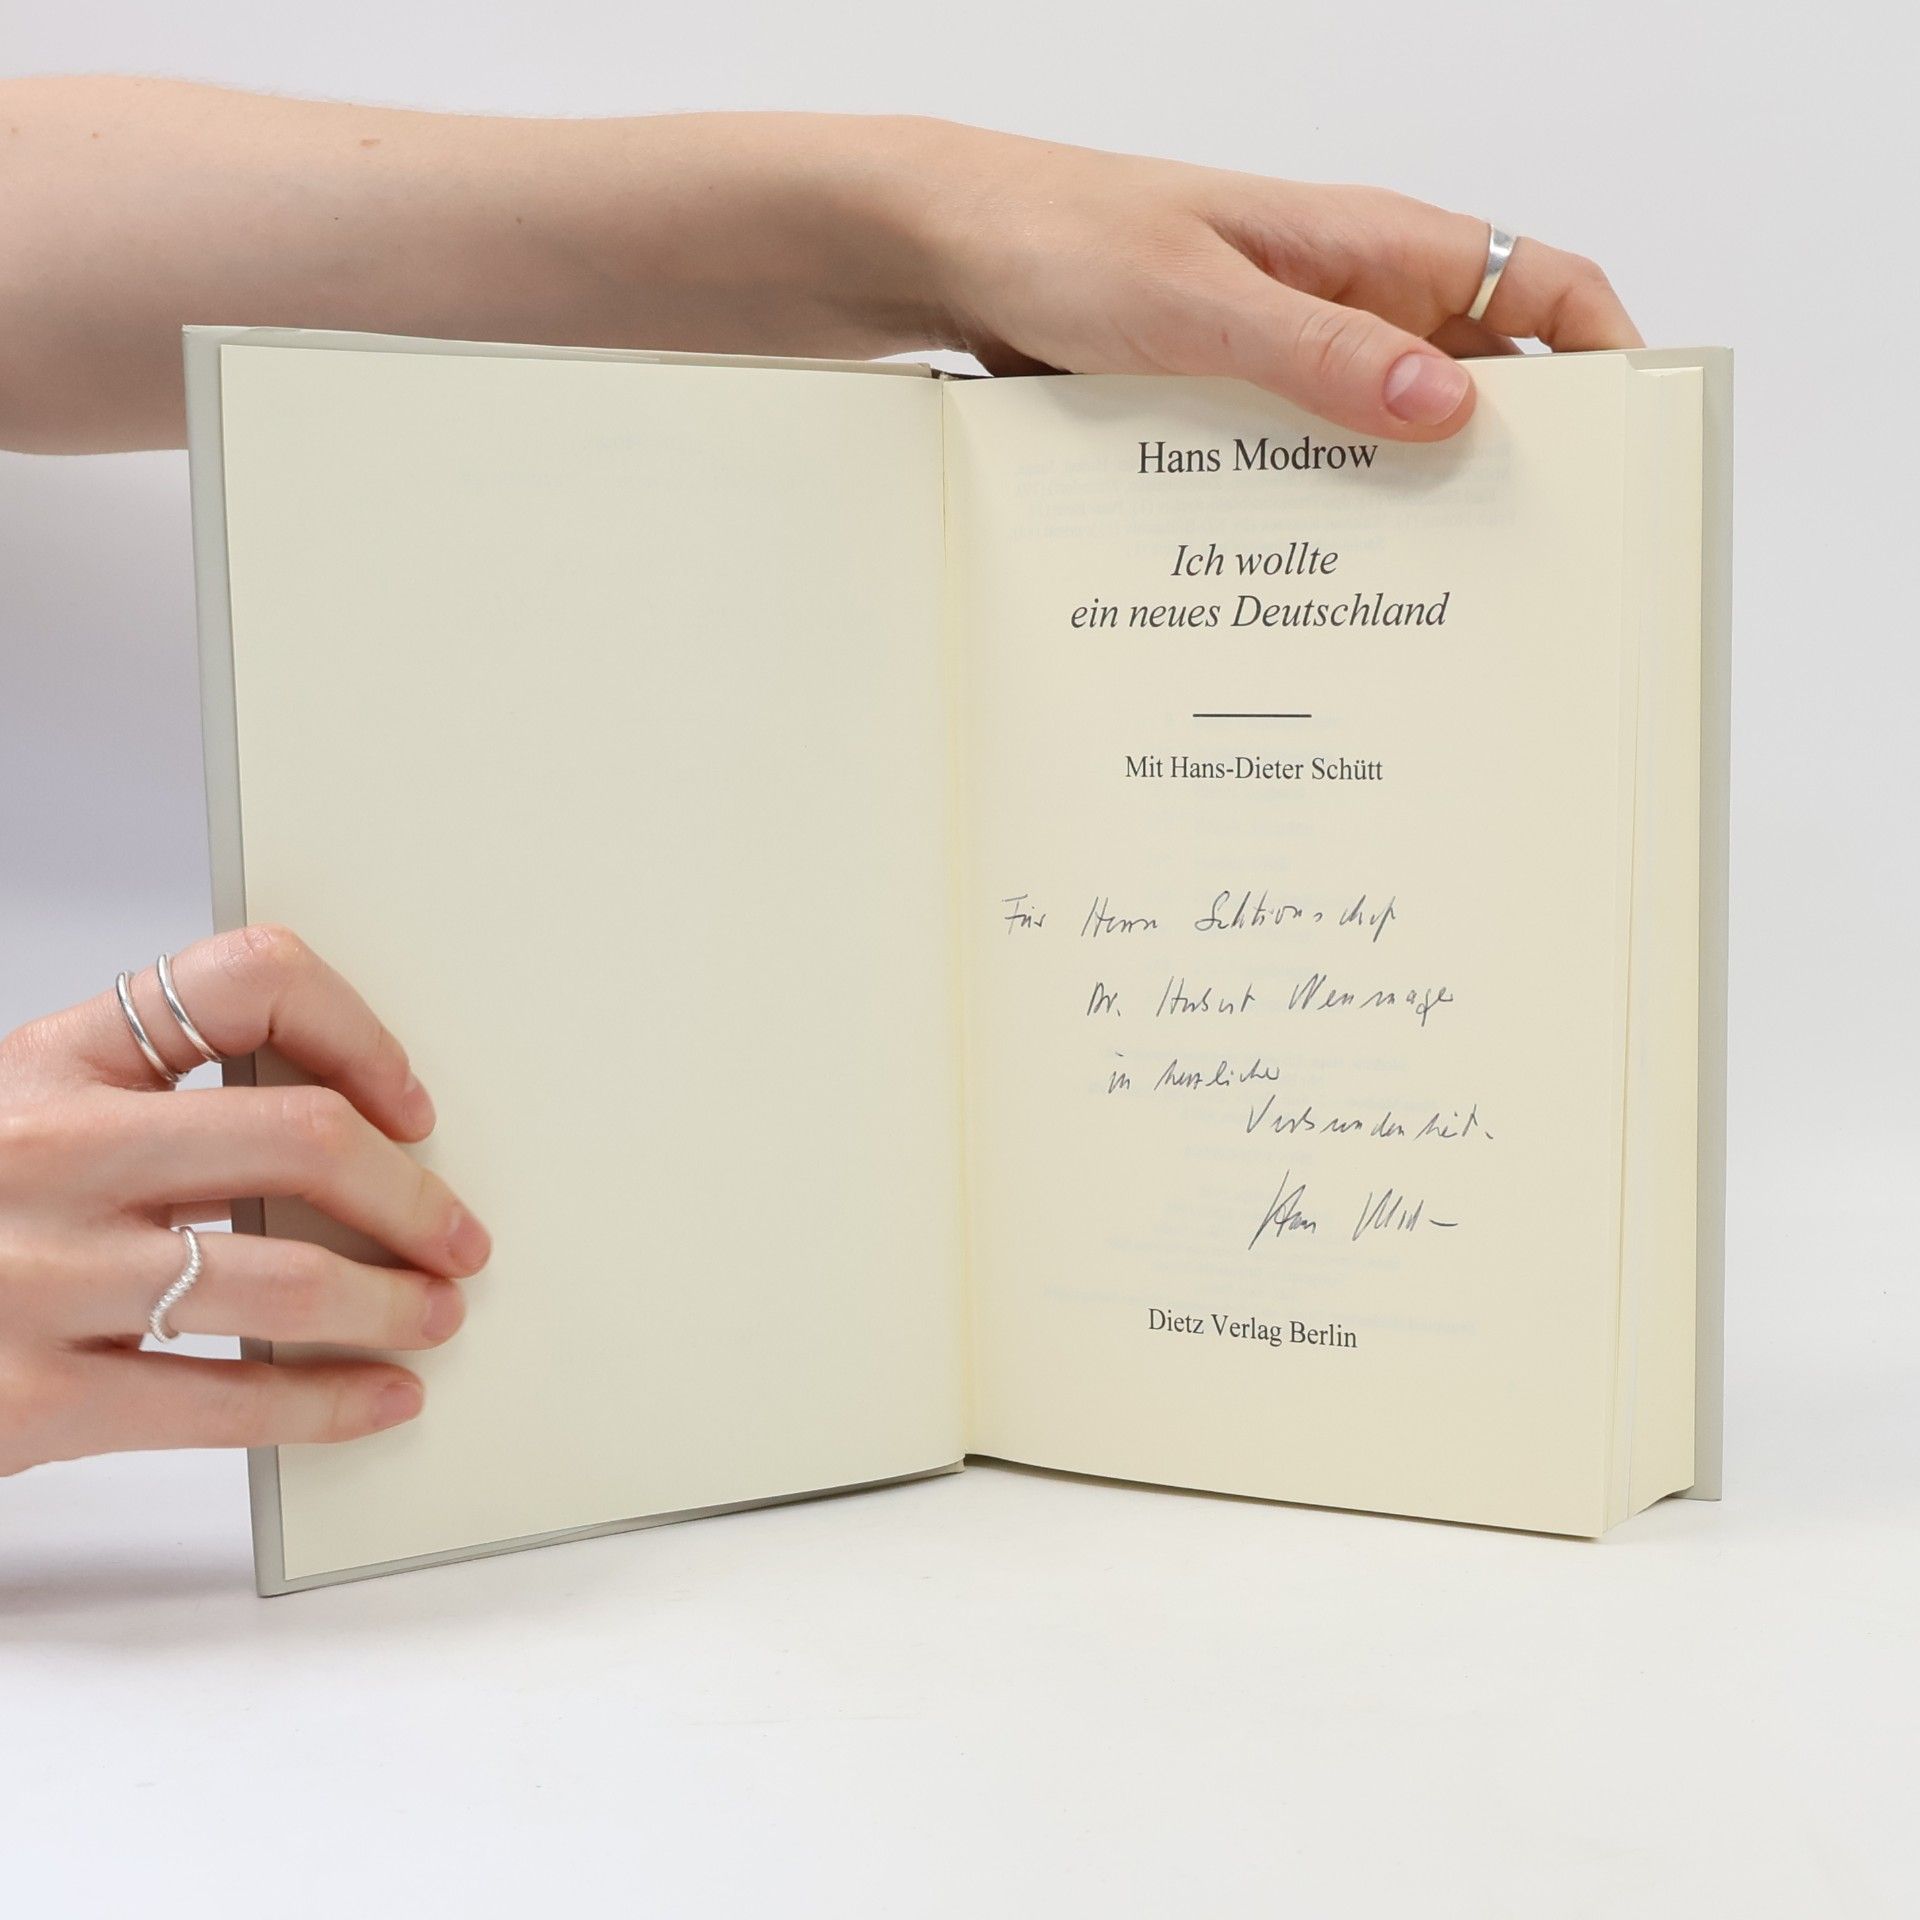 Hans Modrow
Ich wollte
ein neues Deutschland
Mit Hans-Dieter Schütt
Für Herrn Sektionschef
Dr. Hubert
in herzlicher
Verbundenheit.
Hans Modrow
Dietz Verlag Berlin